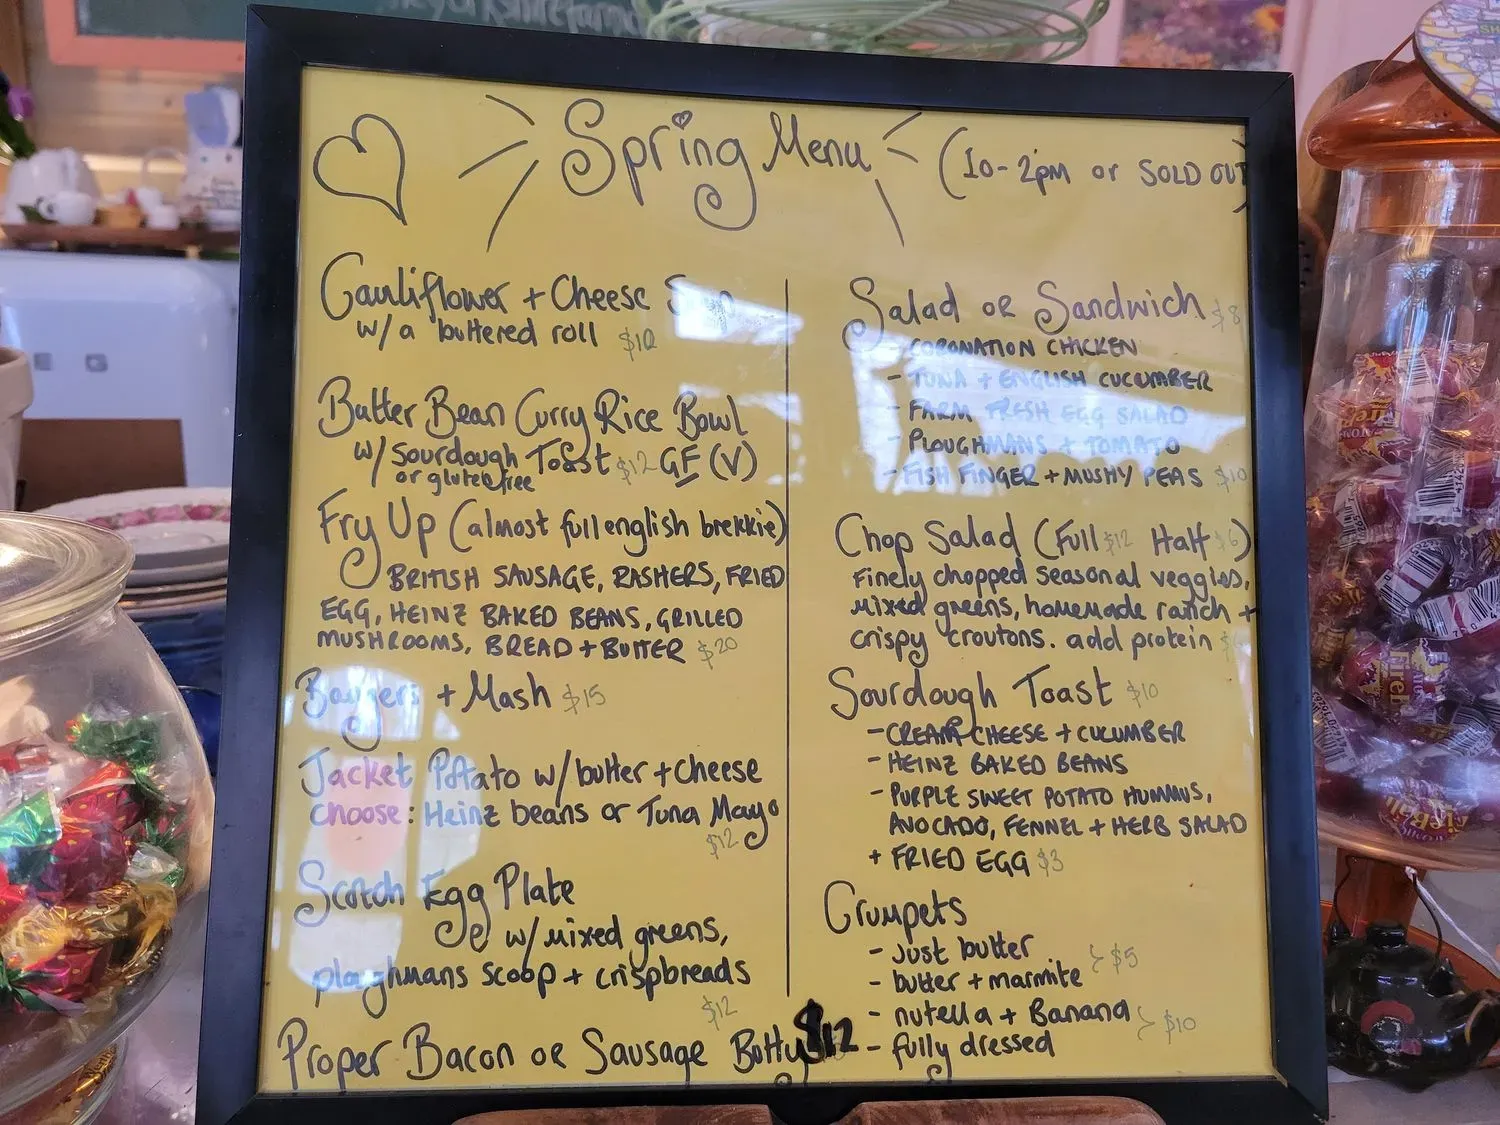 Spring Menu
(10-2pm or SOLD OUT)
Cauliflower + Cheese Soup
w/a buttered roll $10
Butter Bean Curry Rice Bowl
w/ sourdough Toast $12 GF (V)
or gluten free
Fry Up (almost full english brekkie)
BRITISH SAUSAGE, RASHERS, FRIED
EGG, HEINZ BAKED BEANS, GRILLED
MUSHROOMS, BREAD + BUTTER $20
Bangers + Mash $15
Jacket Potato w/butter + cheese
choose: Heinz beans or Tuna Mayo
$12
Scotch Egg Plate
w/mixed greens,
ploughmans scoop + crispbreads
$12
Proper Bacon or Sausage Butty $12
Salad or Sandwich $8
- CORONATION CHICKEN
- TUNA + ENGLISH CUCUMBER
- FARM FRESH EGG SALAD
- PLOUGHMANS + TOMATO
- FISH FINGER + MUSHY PEAS $10
Chop Salad (Full $12 Half $6)
Finely chopped seasonal veggies,
mixed greens, homemade ranch +
crispy croutons. add protein $
Sourdough Toast $10
- CREAM CHEESE + CUCUMBER
- HEINZ BAKED BEANS
- PURPLE SWEET POTATO HUMMUS,
AVOCADO, FENNEL + HERB SALAD
+ FRIED EGG $3
Crumpets
- just butter
- butter + marmite } $5
- nutella + Banana
- fully dressed } $10